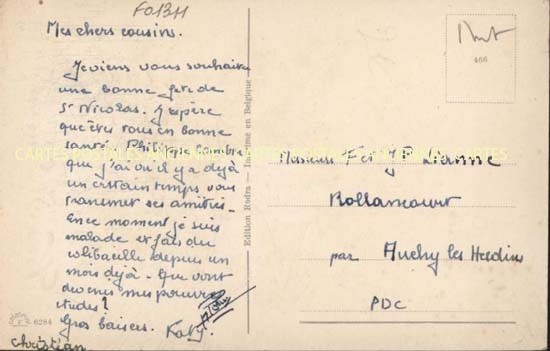 F01311
Mes chers cousins.
Je viens vous souhaiter
une bonne fête de
St Nicolas. J'espère
que êtes vous en bonne
santé. Philippe Lambre
que j'ai vu il y a déjà
un certain temps vous
transmet ses amitiés.
En ce moment je suis
malade et fais du
colibacille depuis un
mois déjà. Que vont
devenir mes pauvres
études?
Gros baisers. Katy
christian
6284
Edition Rudra — Imprimé en Belgique
466
CARTES POSTALES ANCIENNES
Messieurs F et JP Lianne
Rollancourt
par Auchy les Hesdins
PDC